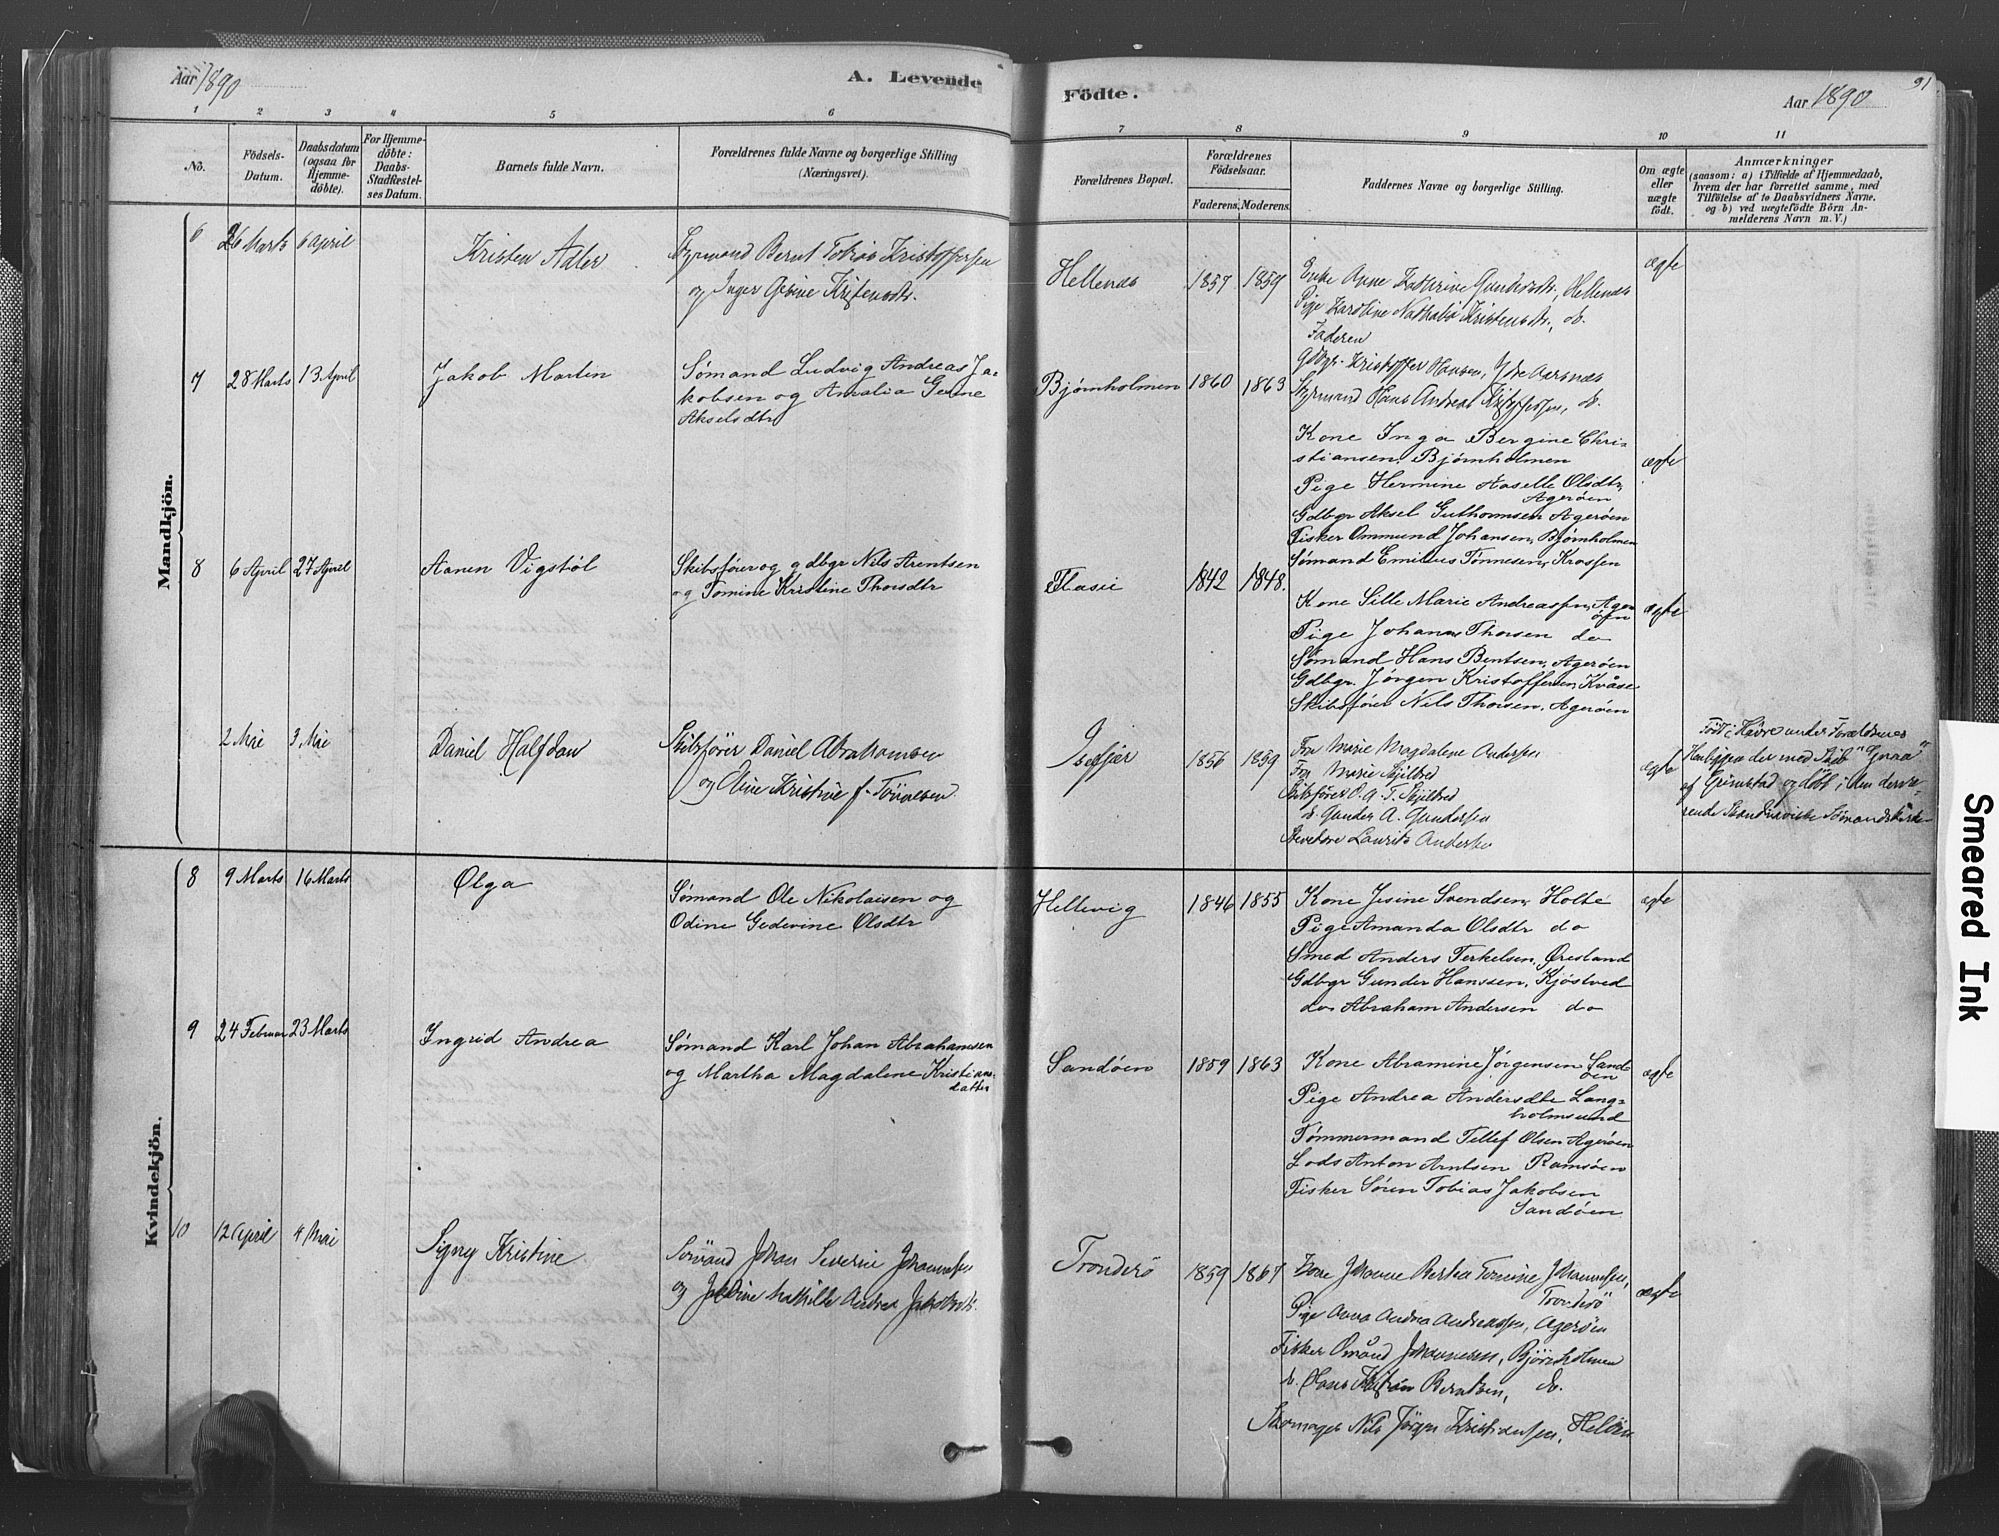 Aar 1890
A. Levende
Födte.
Aar 1890
91
1 2 3 4 5 6 7 8 9 10 11
No.
Födsels-Datum.
Daabsdatum (ogsaa for Hjemmedöbte).
For Hjemmedöbte: Daabs-Stadfæstelses Datum.
Barnets fulde Navn.
Forældrenes fulde Navne og borgerlige Stilling (Næringsvei).
Forældrenes Bopæl.
Forældrenes Födselsaar.
Faderens. Moderens.
Faddernes Navne og borgerlige Stilling.
Om ægte eller uægte födt.
Anmærkninger
(saasom: a) i Tilfælde af Hjemmedaab,
hvem der har forrettet samme, med
Tilföielse af to Daabsvidners Navne.
og b) ved uægtefödte Börn An-
melderens Navn m. V.)
Mandkjön.
6 26 Marts 6 April
Kristen Adler
Styrmand Bernt Tobias Kristoffersen
og Inger Gesine Kristensdtr.
Hellenæs 1857 1859
Enke Anne Kathrine Gundersdtr., Hellenæs
Pige Karoline Nathalia Kristensdtr., do.
Faderen
Gdbgr. Kristoffer Hansen, Ytre Aarsnæs
Styrmand Hans Andreas Kristoffersen, do.
ægte
7 28 Marts 13 April
Jakob Martin
Sømand Ludvig Andreas Ja-
kobsen og Amalia Gurine
Akselsdtr
Bjørnholmen 1860 1863
Kone Inga Bergine Chri-
stiansen, Bjørnholmen
Pige Hermine Aaselle Olsdtr,
Agerøen
Gdbgr Aksel Guthormsen Agerøen
Fisker Ommund Johansen, Bjørnholmen
Sømand Emilius Tønnesen, Krossen
ægte
8 6 April 27 April
Aanen Vigstøl
Skibsfører og gdbgr Nils Arentsen
og Tomine Kristine Thorsdtr
1842 1848.
Kone Sille Marie Andreassen, Ager-
øen
Pige Johanne Thorsen do
Sømand Hans Bentsen, Agerøen
Gdbgr. Jørgen Kristoffersen, Kvåse
Skibsfører Nils Thorsen, Agerøen
ægte
2 Mai 3 Mai
Daniel Halfdan
Skibsfører Daniel Abrahamsen
og Eline Kristine f. Tönnesen.
Isefjær 1856 1859
Fru Marie Magdalene Andersen
Fru Marie Skjilbred
Skibsfører O. A. T. Skjilbred
do. Gunder A. Gundersen
Stevedore Laurits Andersen
ægte
Födt i Havre under Forældrenes
Henliggen der med Skib "Gynaa"
af Grimstad og döbt i den derværende
Skandinaviske Sömandskirke
Kvindekjön.
8 9 Marts 16 Marts
Olga
Sømand Ole Nikolaisen og
Odine Gedevine Olsdtr
Hellevig 1846 1855
Kone Jesine Svendsen, Holte
Pige Amanda Olsdtr do
Smed Anders Terkelsen, Øresland
Gdbgr Gunder Hanssen, Kjøstved
do Abraham Andersen do
ægte
9 24 Februar 23 Marts
Ingrid Andrea
Sømand Karl Johan Abrahamsen
og Martha Magdalene Kristians-
datter
Sandøen 1859 1863
Kone Abramine Jørgensen Sand-
øen
Pige Andrea Andersdtr Lang-
holmsund
Tømmermand Tellef Olsen Agerøen
Lods Anton Arntsen Ramsøen
Fisker Søren Tobias Jakobsen
Sandøen
ægte
10 12 April 4 Mai
Signy Kristine
Sømand Johan Severin Johannesen
og Mathilde Andrea Jakobsdtr.
Tronderö 1859 1867
Kone Johanne Bertea Tomine Johannesen,
Tronderö
Pige Anna Andrea Andreassen, Agerøen
Fisker Omund Johannesen, Bjørnholmen
do. Hans Kristian Berntsen, do.
Skomager Nils Jörgen Kristiansen, Helöen
ægte
Smeared Ink